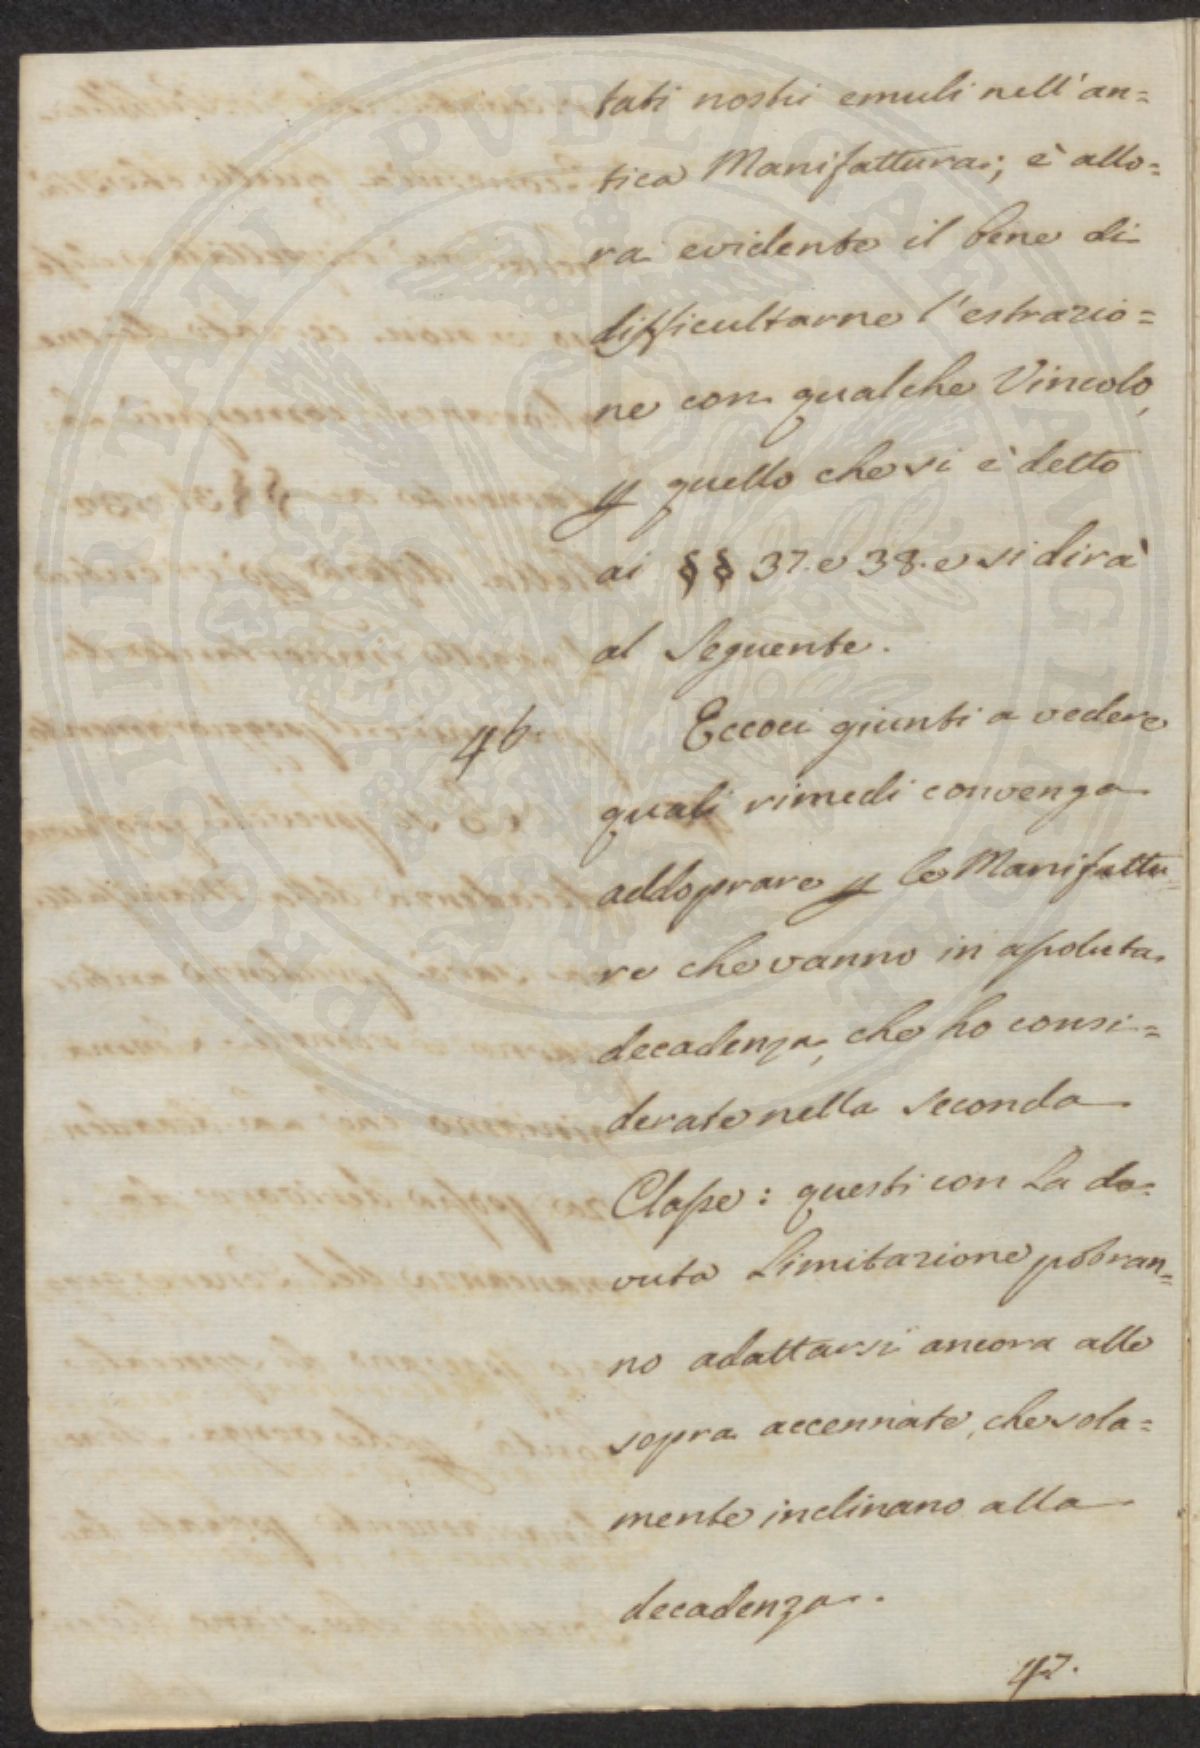 tati nostri emuli nell'an=
tica Manifattura; è allo=
ra evidente il bene di
difficultarne l'estrazio=
ne con qualche Vincolo,
p quello che si è detto
ai §§ 37. e 38. e si dirà
al Seguente.
46. Eccoci giunti a vedere
quali rimedi convenga
addoprare p le Manifattu=
re che vanno in assoluta
decadenza, che ho consi=
derate nella Seconda
Classe: questi con La do=
vuta Limitazione potran=
no adattarsi ancora alle
sopra accennate, che sola=
mente inclinano alla
decadenza.
47.
PROSPERITATI PUBLICAE AUGENDAE